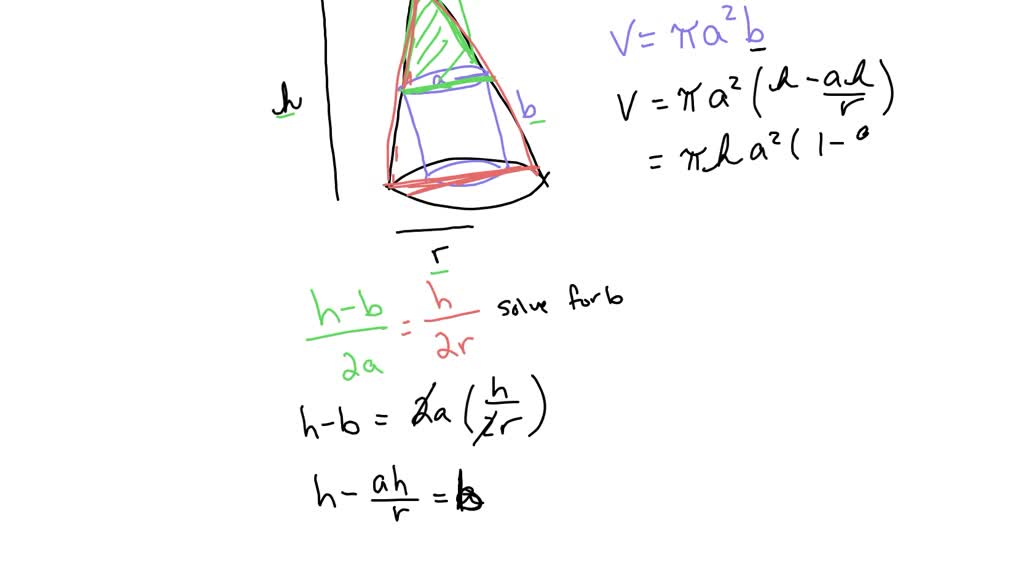 V = πa²b
V = πa²(h - ah/r)
= πha²(1 -
a
h
b
r
(h-b)/2a = h/2r solve for b
h-b = 2a(h/2r)
h - ah/r = b